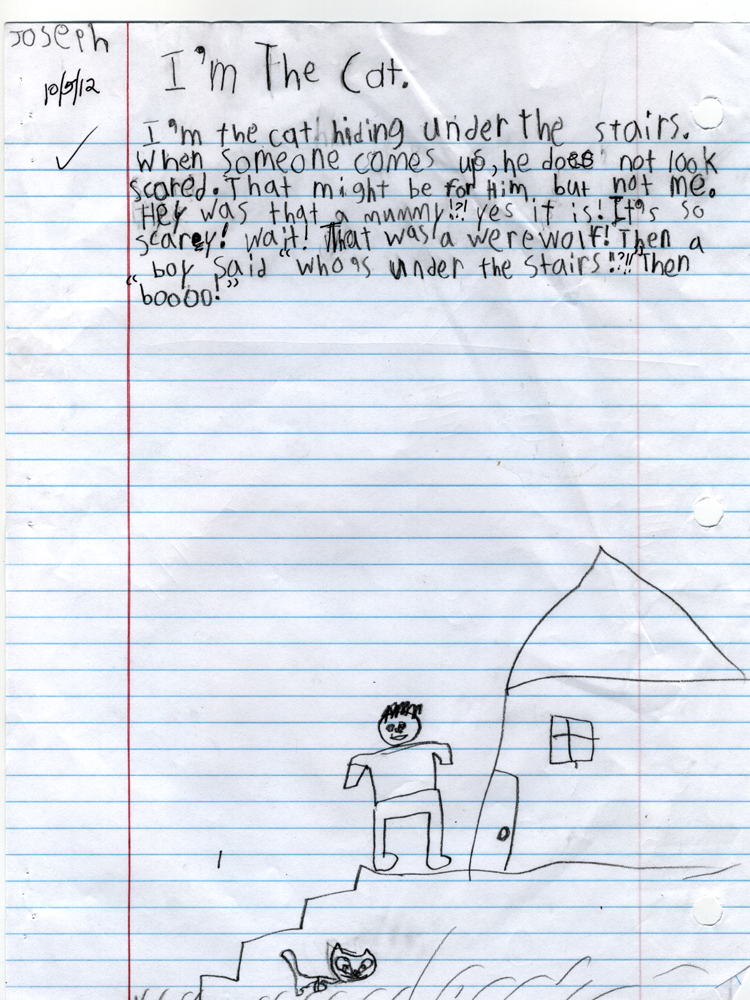 Joseph
10/5/12
I'm The Cat.
I'm the cat hiding under the stairs.
When someone comes up, he does not look
scared. That might be for Him, but not me.
Hey was that a mummy!?! yes it is! It's so
scarey! wait! That was a werewolf! Then a
boy said "who's under the stairs!?!! Then
"boooo!"